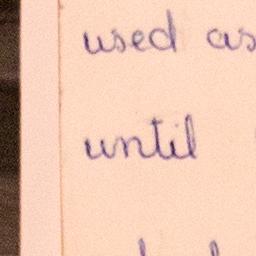 used as
until